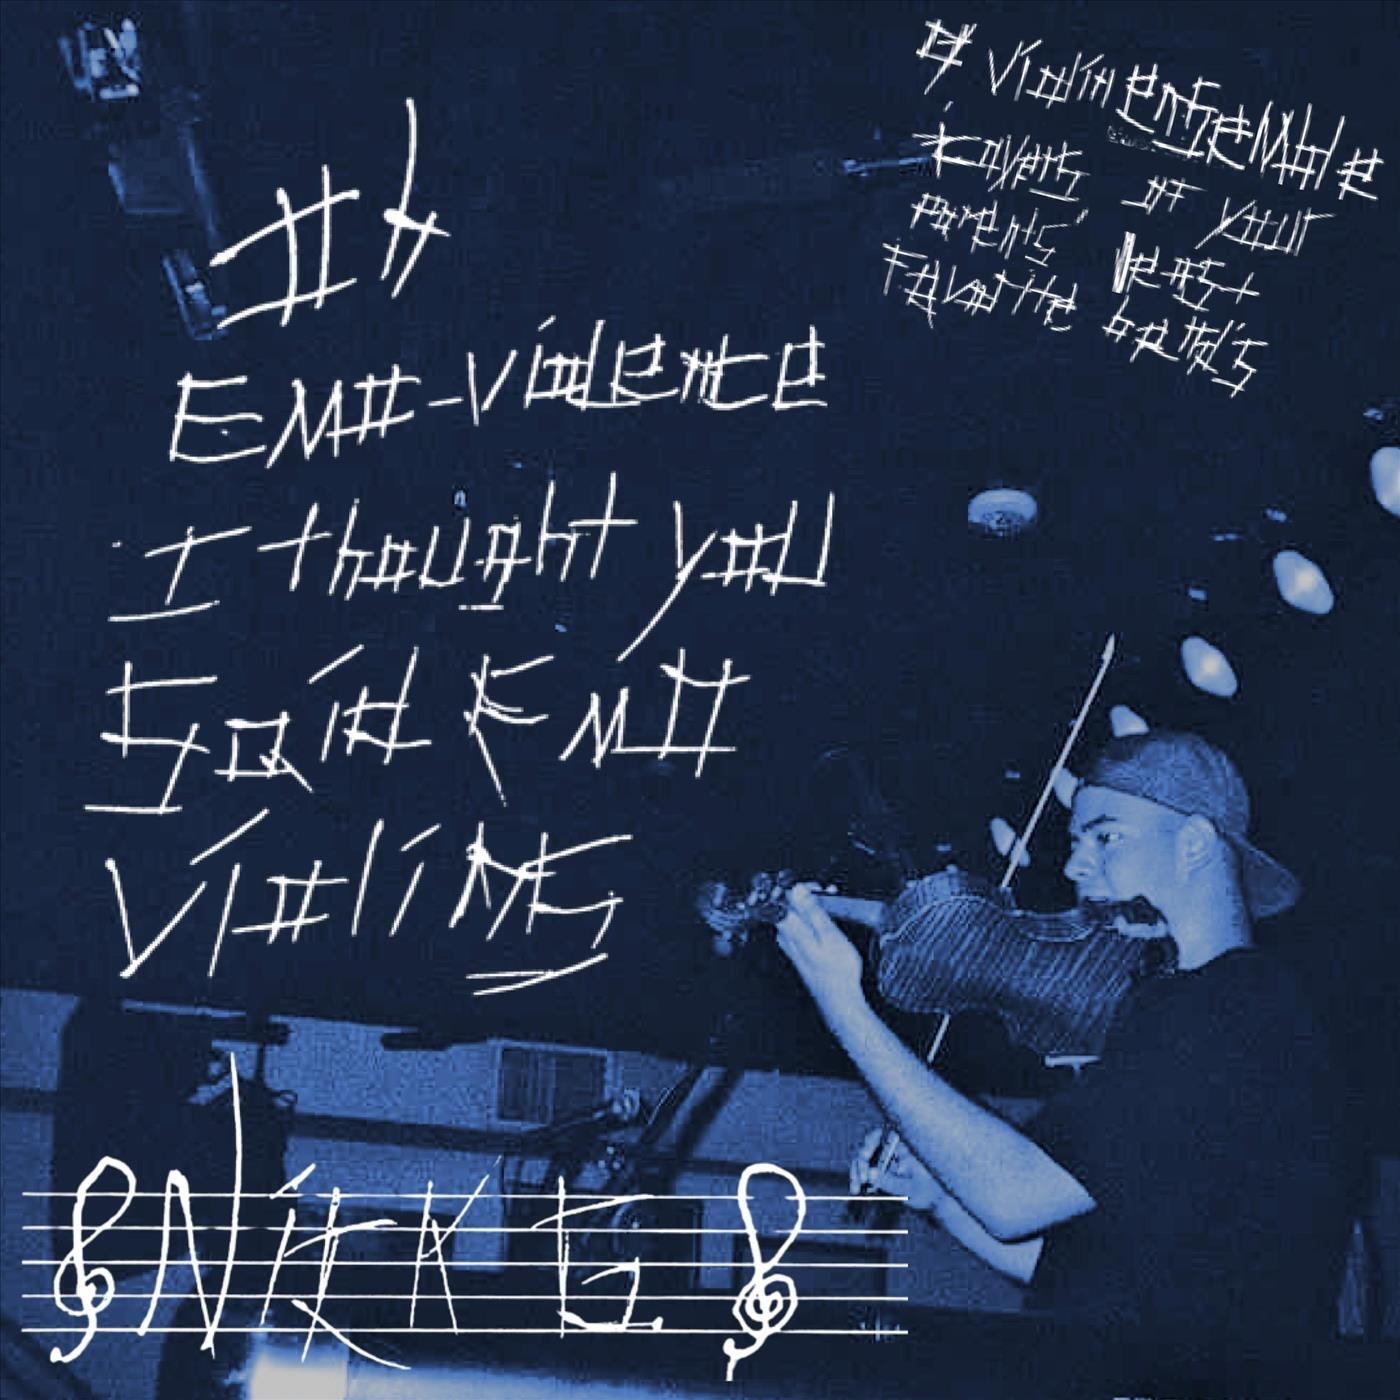 Oh
EMO-violence
I thought you
Said EMO
violiNS
a violin enseMble
covers of your
parents' least
favorite band's
Nick G.